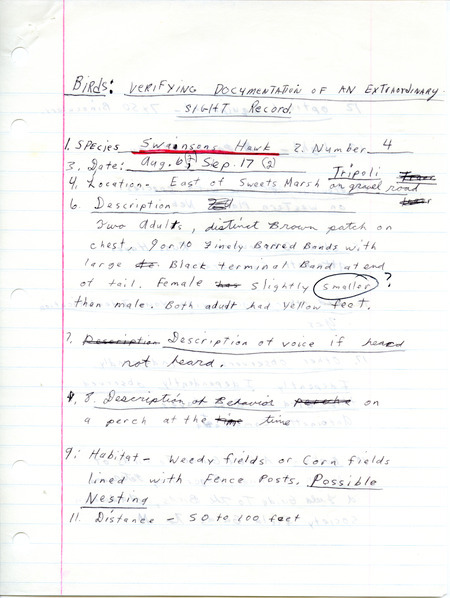 Birds: Verifying Documentation of an Extraordinary
Sight Record.
1. Species Swainsons Hawk 2. Number 4
3. Date: Aug. 6 (2), Sep. 17 (2)
Tripoli
4. Location - East of Sweets Marsh on gravel road
6. Description
Two Adults, distinct Brown patch on
chest. 9 or 10 Finely Barred Bands with
large Black terminal Band at end
of tail. Female has slightly smaller ?
then male. Both adult had yellow feet.
7. Description Description of voice if heard
not heard.
8. Description of Behavior perche on
a perch at the time time
9. Habitat - Weedy fields or Corn fields
lined with Fence Posts. Possible
Nesting
11. Distance - 50 to 100 feet